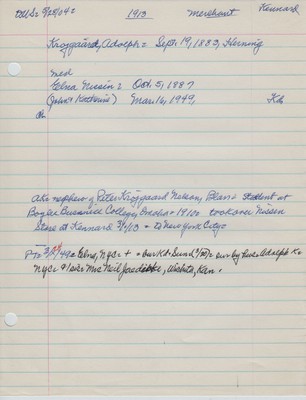 toUS: 9/25/04 = 1913 merchant Kennard
Krojgaard, Adolph = Sept. 19, 1883, Herning
med
Elna Nissin: Oct. 5, 1887
(John & Katherine) Mar. 16, 1949, Kb
Ch
aks nephew of Peter Krojgaard Nelson, Blair = student at
Boyles Business College, Omaha = 1910s took over Nissen
Store at Kennard 3/1/13 = to New York City =
= Elna, NYC = + = bur Kb = Sund = sur by hus = Adolph K =
NYC = Mrs Neil, Wichita, Kan.